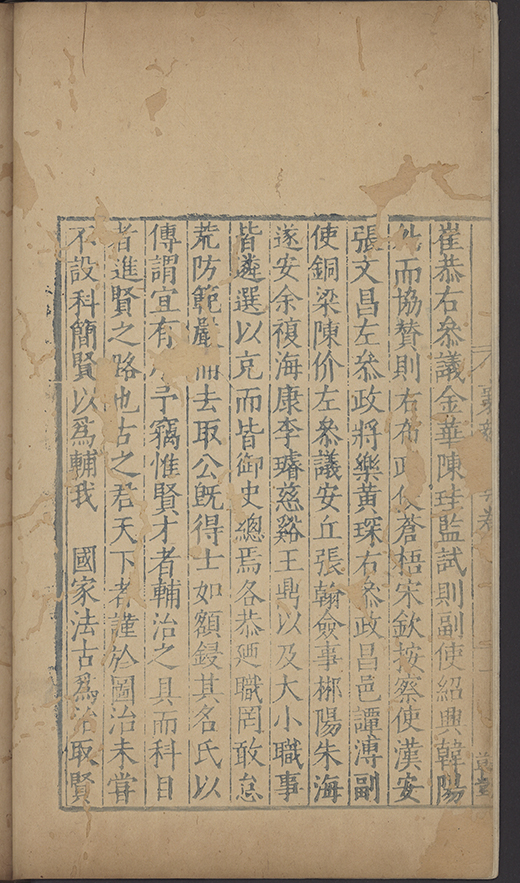 崔恭右叅議金華陳玤監試則副使紹興韓陽
而協賛則右布政使蒼梧宋欽按察使漢安
張文昌左叅政將樂黃琛右叅政昌邑譚溥副
使銅梁陳价左叅議安丘張翰僉事郴陽朱海
遂安余複海康李璿慈谿王鼎以及大小職事
皆遴選以充而皆御史總焉各恭廼職罔敢怠
荒防範嚴而去取公旣得士如額鋟其名氏以
傳謂宜有予竊惟賢才者輔治之具而科目
者進賢之路也古之君天下者謹於圖治未甞
不設科簡賢以爲輔我　國家法古爲治取賢